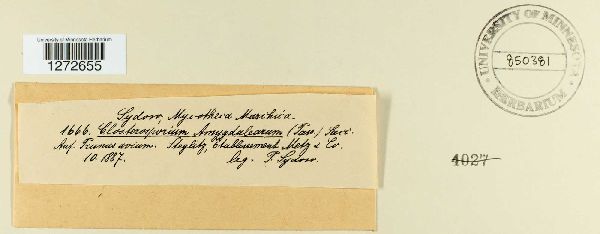 University of Minnesota Herbarium
1272655
Sydow, Mycotheca Marchica.
1666. Clasterosporium Amygdalearum (Pass.) Sacc.
Auf Prunus avium. Steglitz, Etablissement Metz & Co.
10.1887. leg. P. Sydow.
UNIVERSITY OF MINNESOTA
850381
HERBARIUM
4027